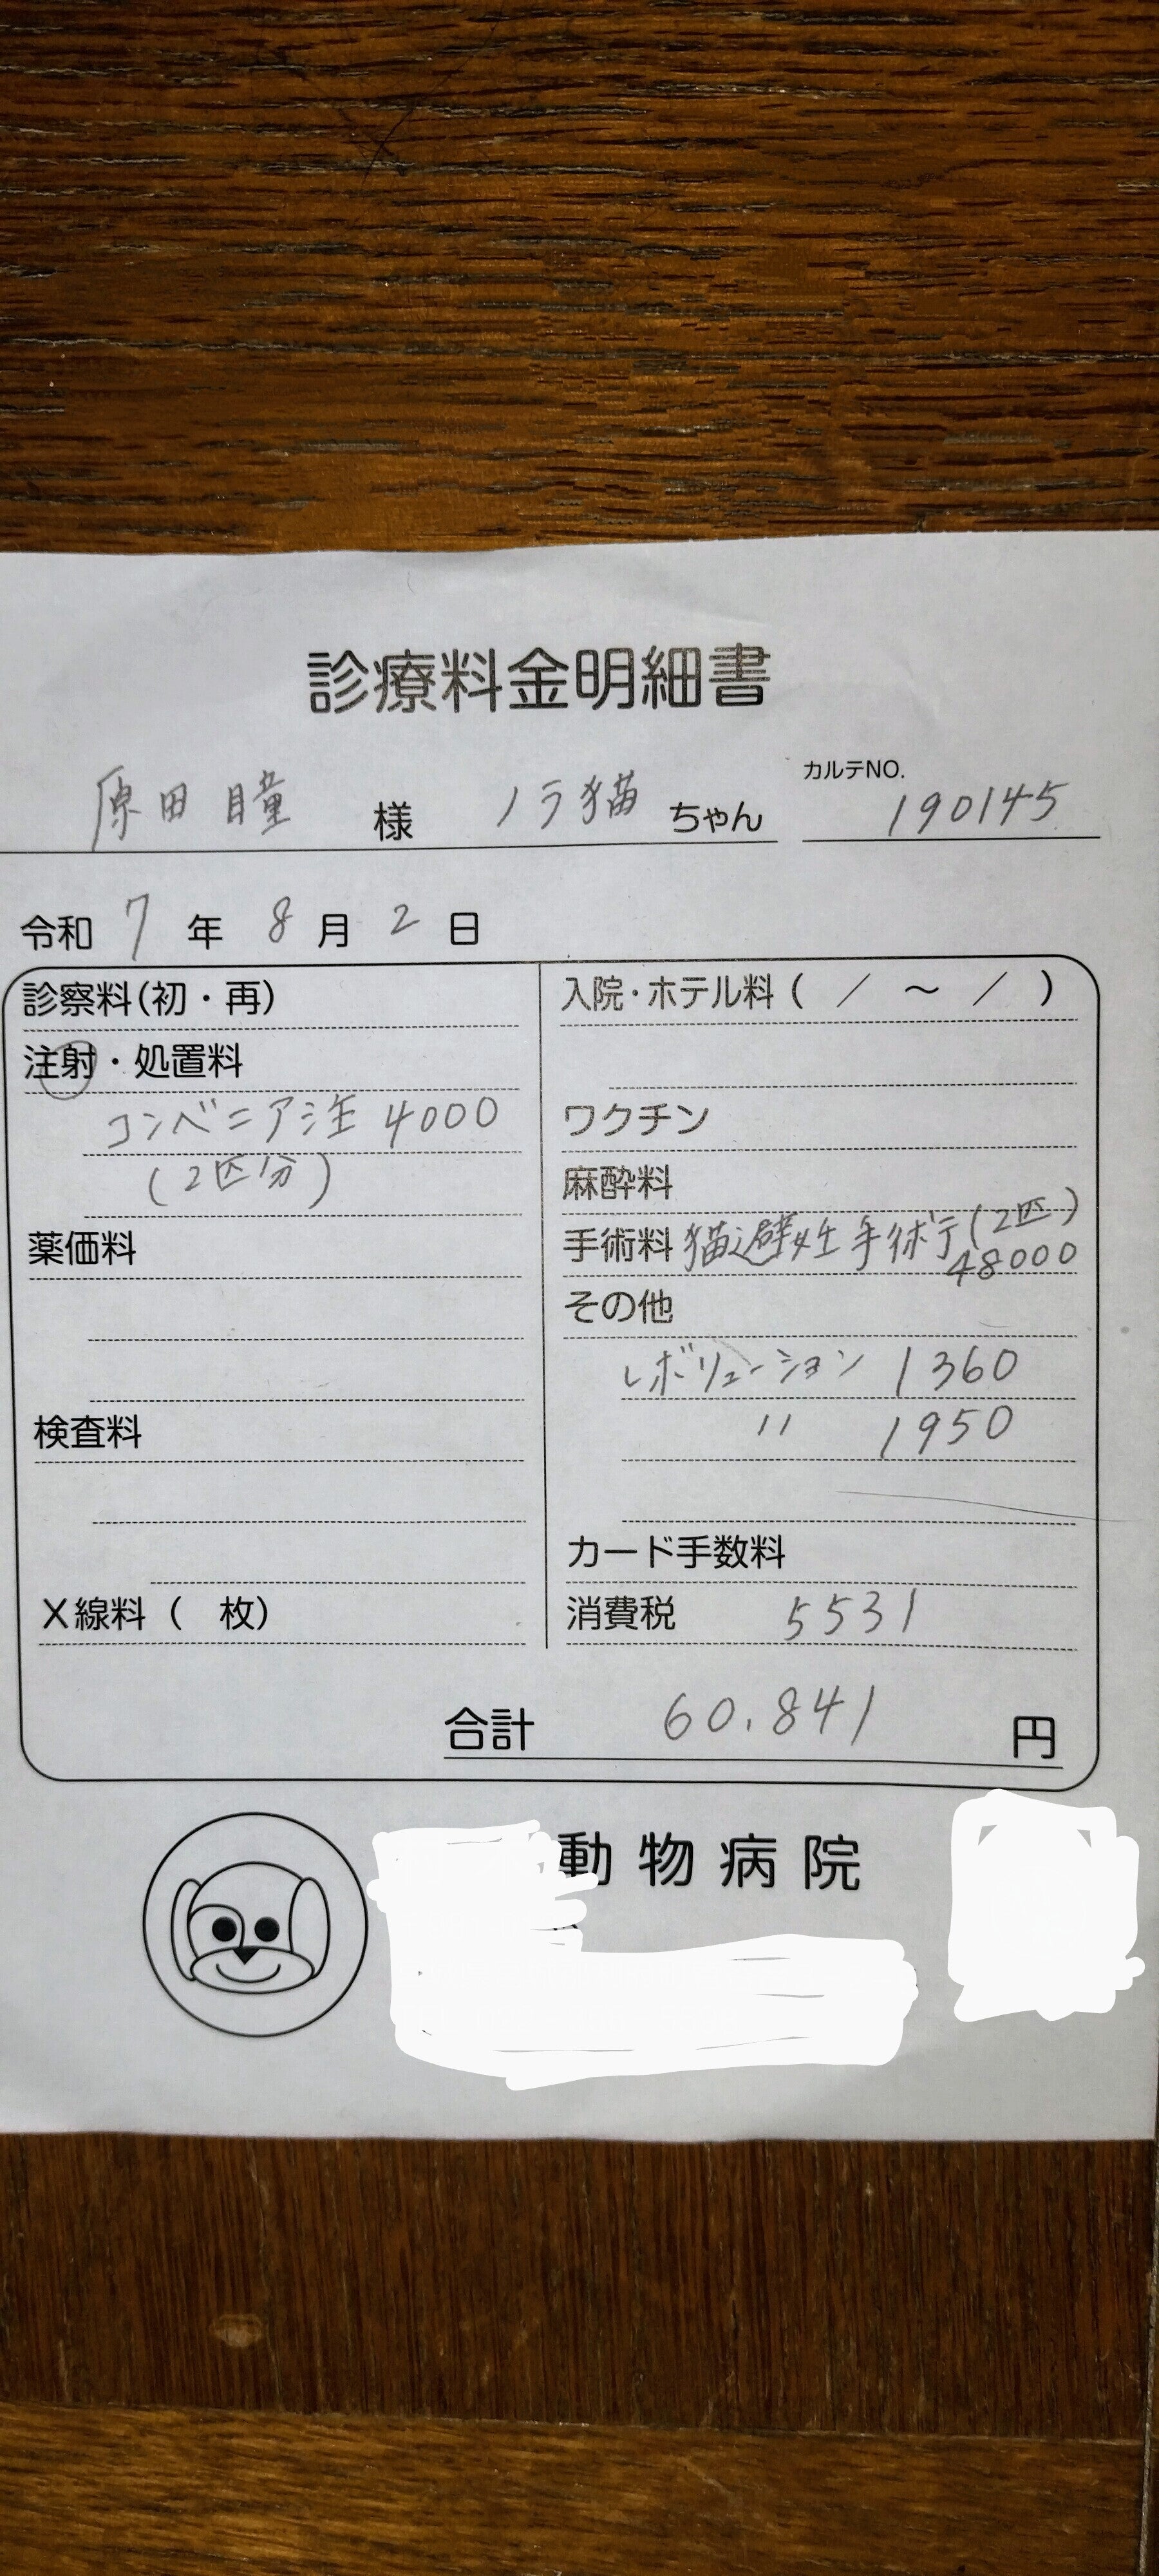 診療料金明細書
原田 瞳 様 ノラ猫 ちゃん カルテNO. 190145
令和 7 年 8 月 2 日
診察料(初・再)
注射・処置料
コンベニア注 4000
(2匹分)
薬価料
検査料
X線料 ( 枚)
入院・ホテル料 ( / ～ / )
ワクチン
麻酔料
手術料 猫避妊手術(2匹)
48000
その他
レボリューション 1360
〃 1950
カード手数料
消費税 5531
合計 60.841 円
動物病院